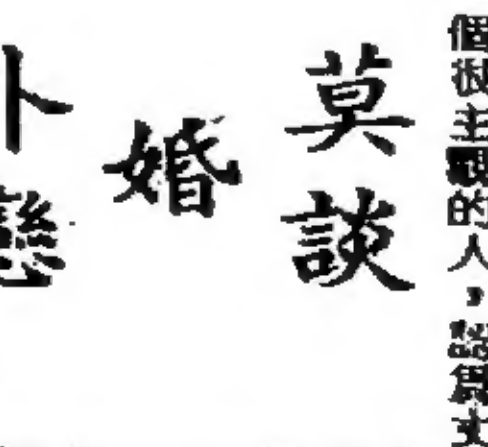 個很主觀的人，認為丈
莫談
婚
外戀